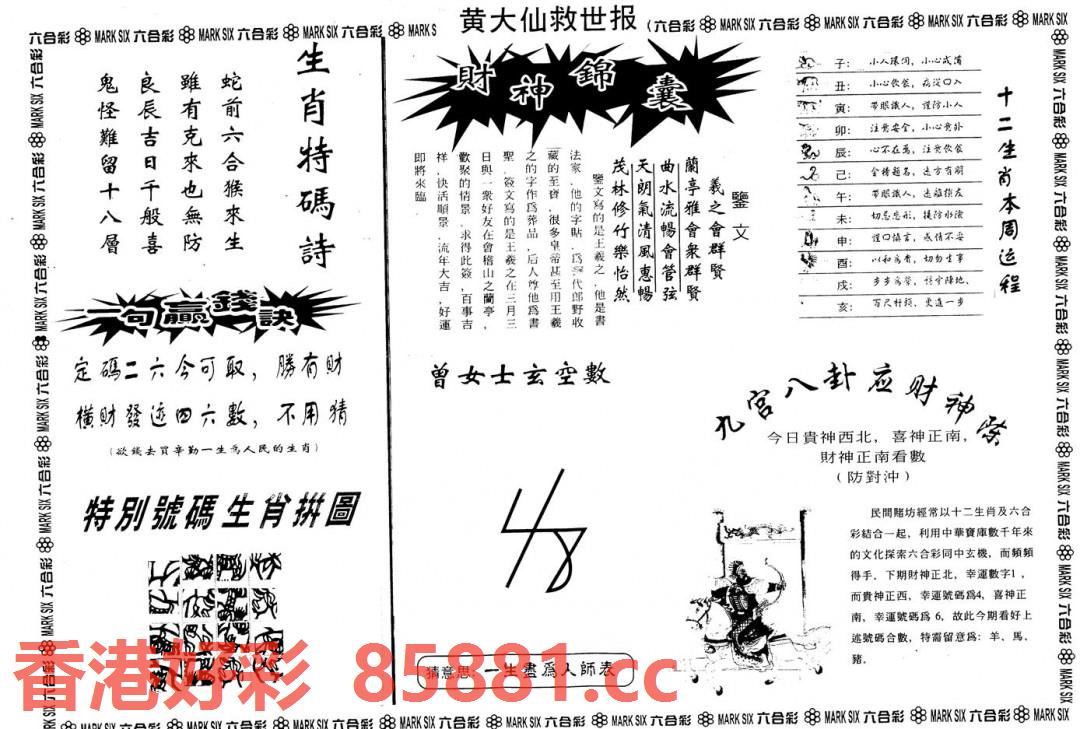 黄大仙救世报
六合彩 MARK SIX 六合彩 MARK SIX 六合彩 MARK SIX 六合彩 MARK S
(六合彩 MARK SIX 六合彩 MARK SIX 六合彩 MARK SIX 六合彩 MARK SIX
生肖特碼詩
蛇前六合猴來生
雖有克來也無防
良辰吉日千般喜
鬼怪難留十八層
一句贏錢訣
定碼二六今可取，勝有财
橫財發迹四六數，不用猜
(欲錢去買辛勤一生為人民的生肖)
特別號碼生肖拼圖
財神錦囊
鑒文
義之會群賢
蘭亭雅會衆群賢
曲水流暢會管弦
天朗氣清風惠暢
茂林修竹樂怡然
鑒文時寫的是王羲之，他是書
法家，他的字貼，爲
代郎野收
藏的至寶，很多皇帝甚至用王羲
之的字作爲葬品，后人尊他爲書
聖，簽文寫的是王羲之在三月三
日與一衆好友在會稽山之蘭亭，
歡聚的情景，求得此簽，百事吉
祥，快活順景，流年大吉，好運
即將來臨．
曾女士玄空數
猜意思：一生盡爲人師表
十二生肖本周运程
子：
丑：小心飲食，病從口入
寅：帶眼識人，謹防小人
卯：注意安全，小心意外
辰：心不在焉，注意飲食
己：金榜題名，遠方有朋
午：帶眼識人，遠離損友
未：
申：謹口慎言，感情不妥
酉：以和爲貴，切勿生事
戌：
亥：百尺竿頭，更進一步
九宮八卦应财神柴
今日貴神西北，喜神正南，
財神正南看數
(防對沖)
民間賭坊經常以十二生肖及六合
彩結合一起，利用中華寶庫數千年來
的文化探索六合彩同中玄機，而頻頻
得手．下期財神正北，幸運數字1，
而貴神正西，幸運號碼爲4，喜神正
南，幸運號碼爲 6，故此今期看好上
述號碼合數，特需留意爲：羊、馬、
豬．
香港好彩 85881.cc
MARK SIX 六合彩 MARK SIX 六合彩 MARK SIX 六合彩 MARK SIX 六合彩 MARK SIX 六合彩 MARK SIX 六合彩 MARK SIX 六合彩 MARK SIX 六合彩 MARK SIX 六合彩 MARK SIX